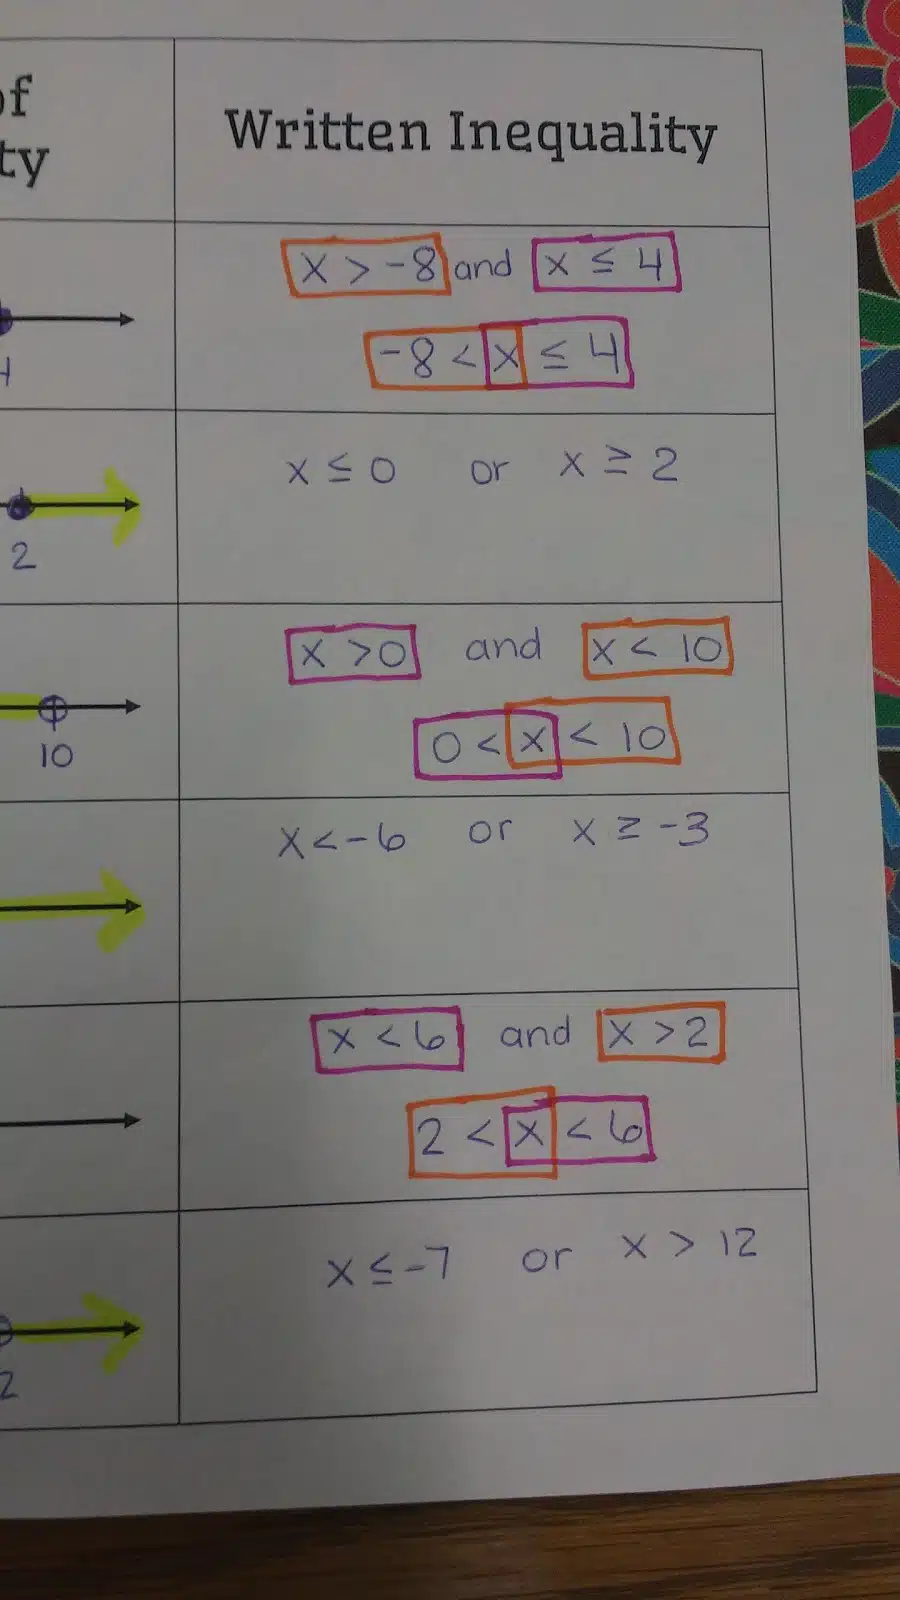 of
ty
Written Inequality
x > -8 and x ≤ 4
-8 < x ≤ 4
4
x ≤ 0 or x ≥ 2
2
x > 0 and x < 10
0 < x < 10
10
x < -6 or x ≥ -3
x < 6 and x > 2
2 < x < 6
x ≤ -7 or x > 12
2